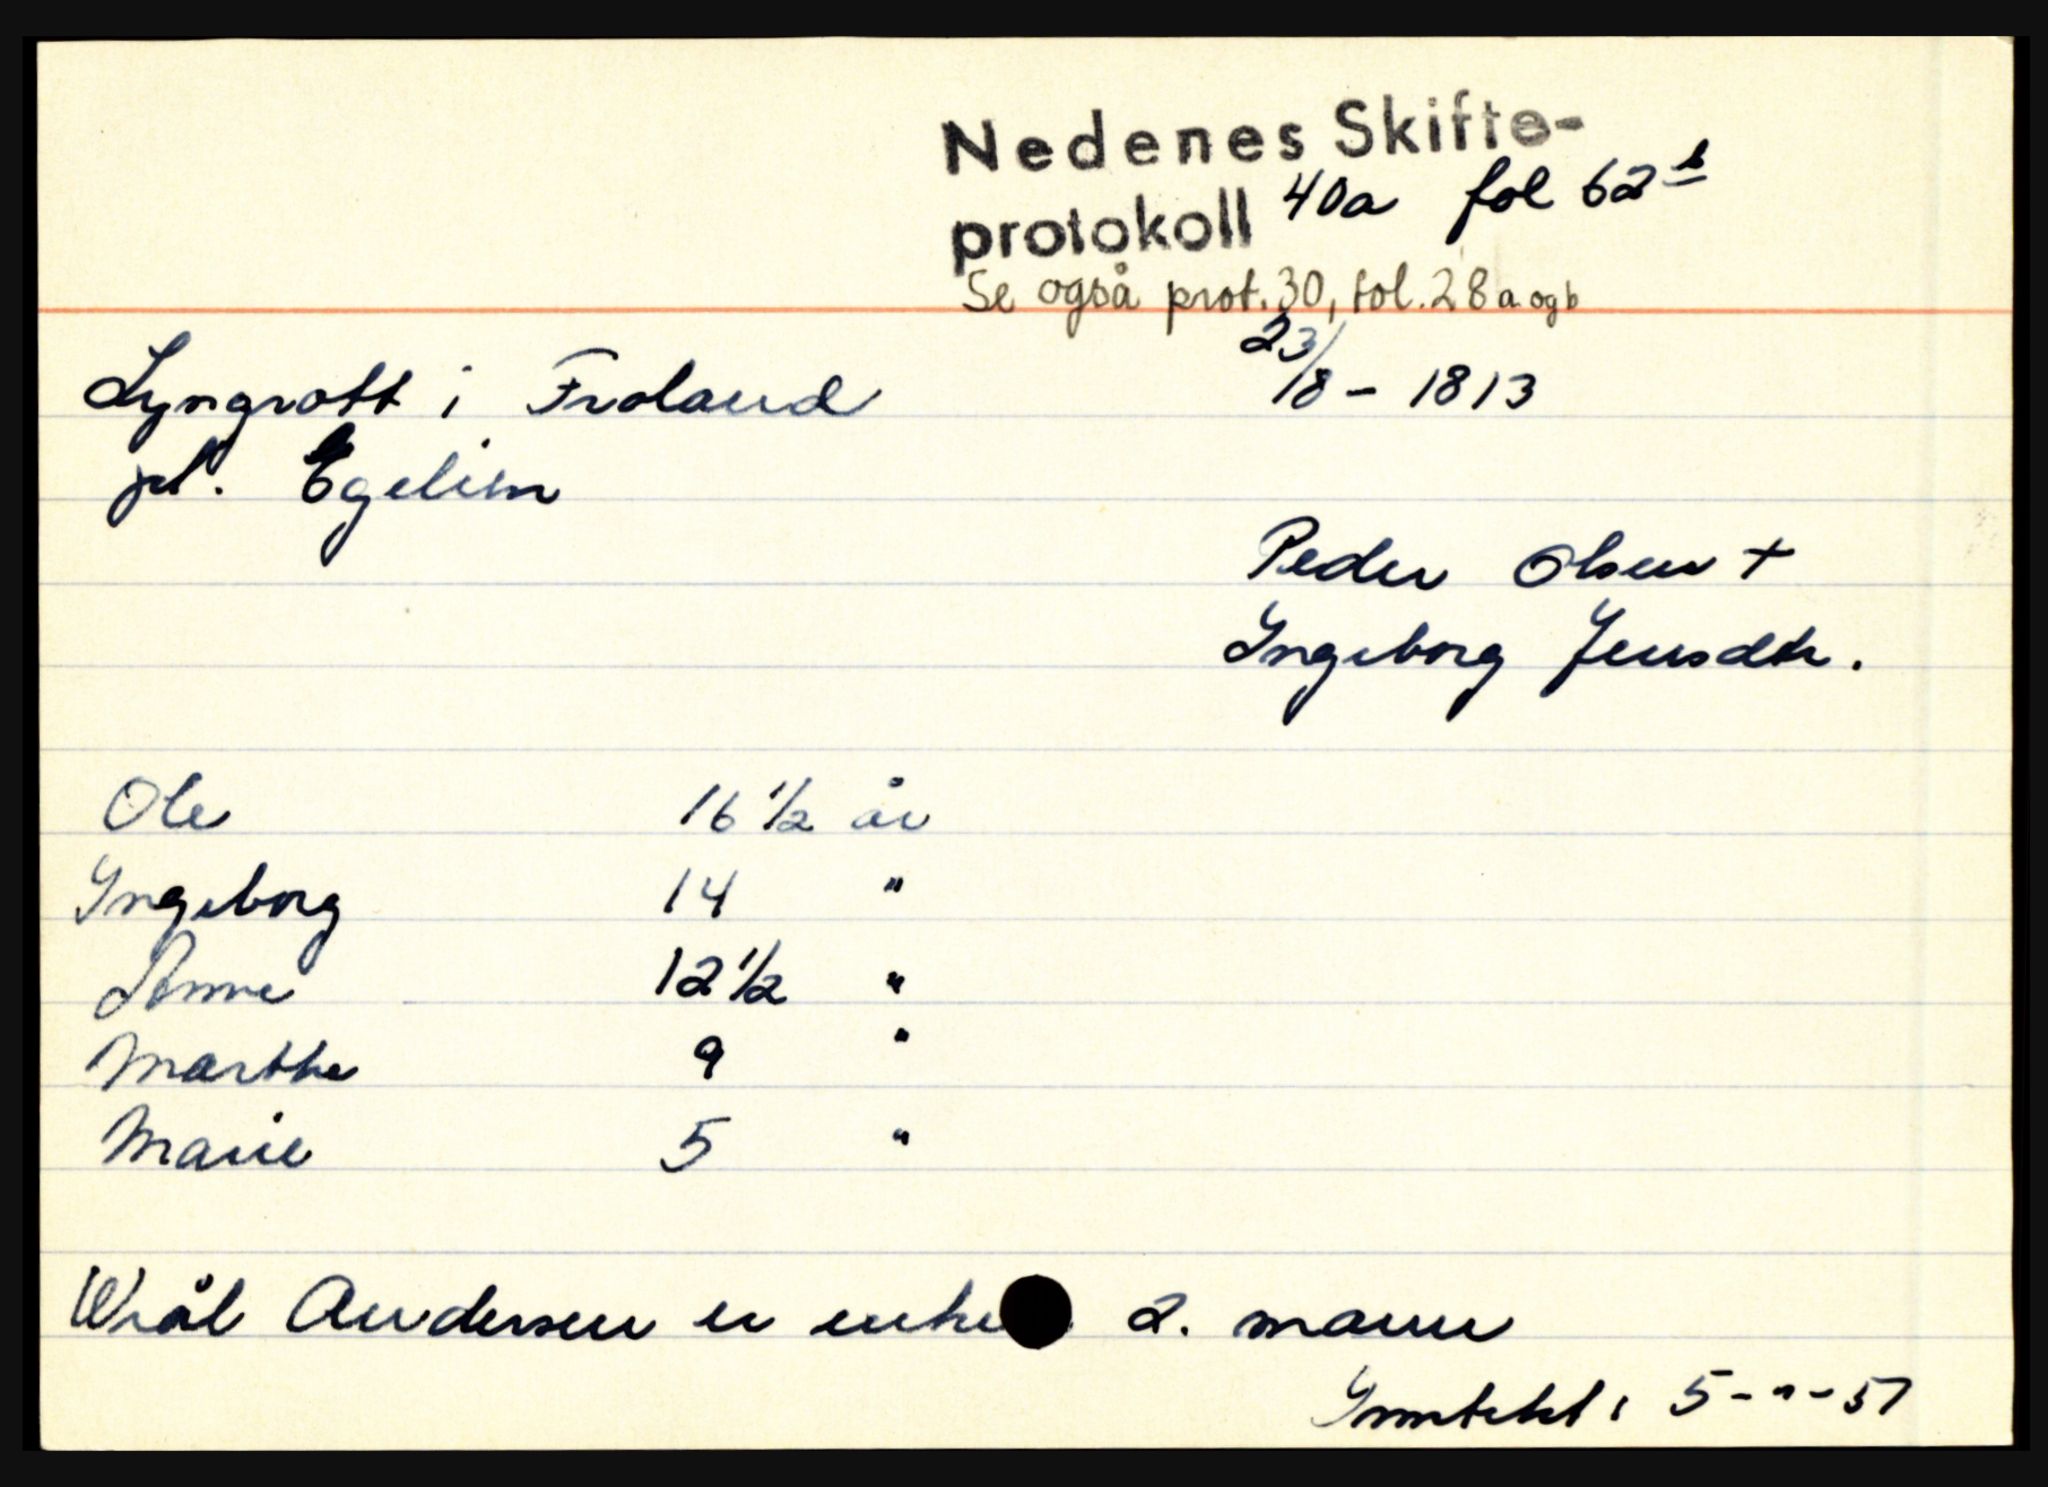 Nedenes Skifte-
protokoll 40a fol 62b
Se også prot. 30, fol. 28 a. og b
Lyngrott i Froland 23/8 - 1813
pl. Egelim
Peder Olsen +
Ingeborg Jensdtr.
Ole 16 1/2 år
Ingeborg 14 "
Anne 12 1/2 "
Marthe 9 "
Marie 5 "
Wraal Andersen er 2. mann
Inntekt: 5-"-51